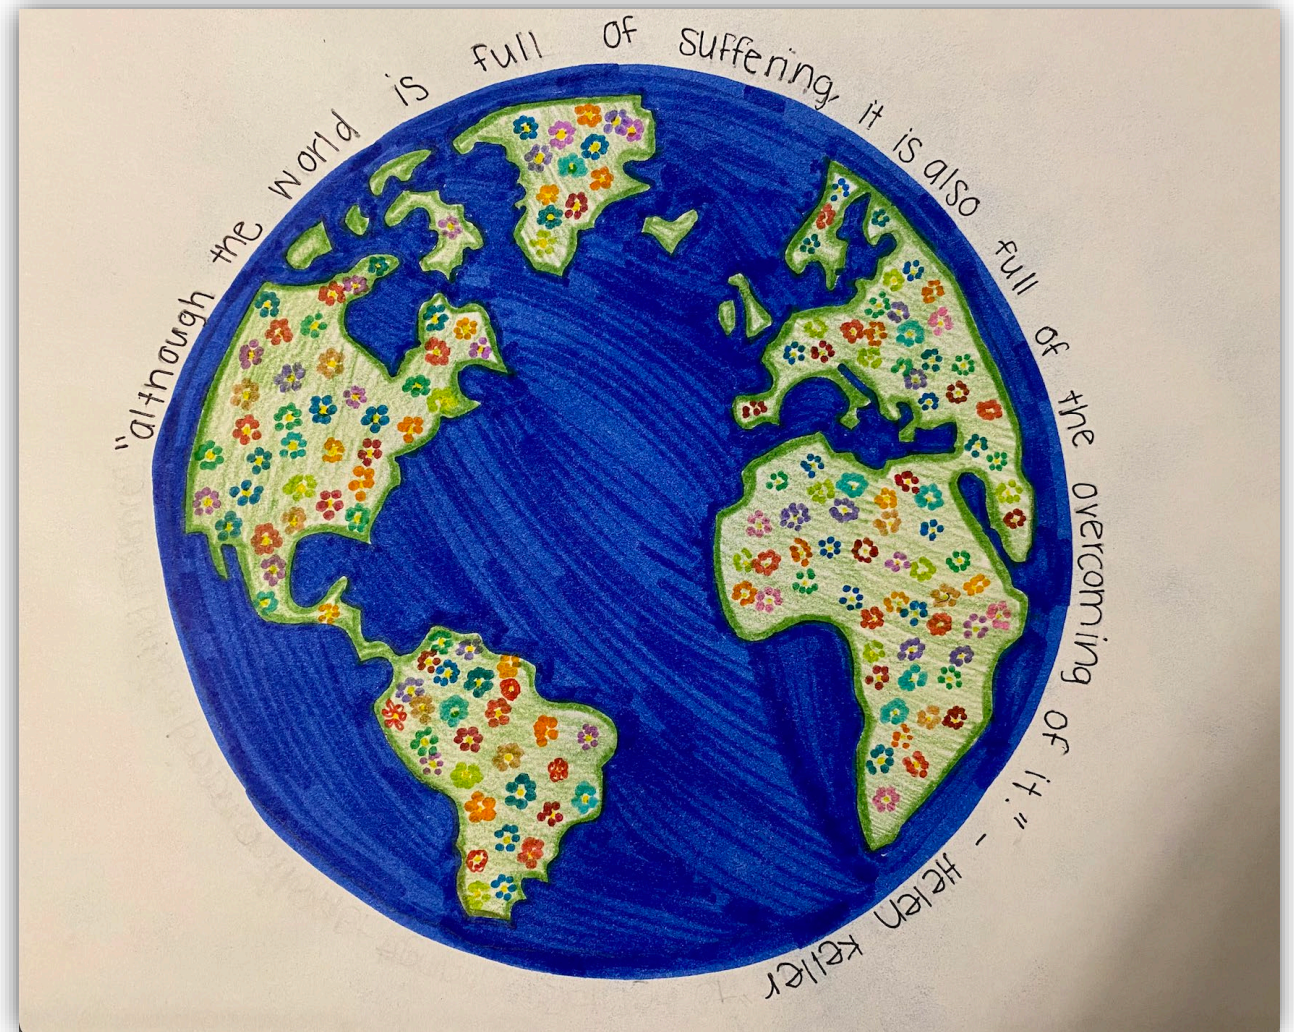 "although the world is full of suffering, it is also full of the overcoming of it." - Helen Keller